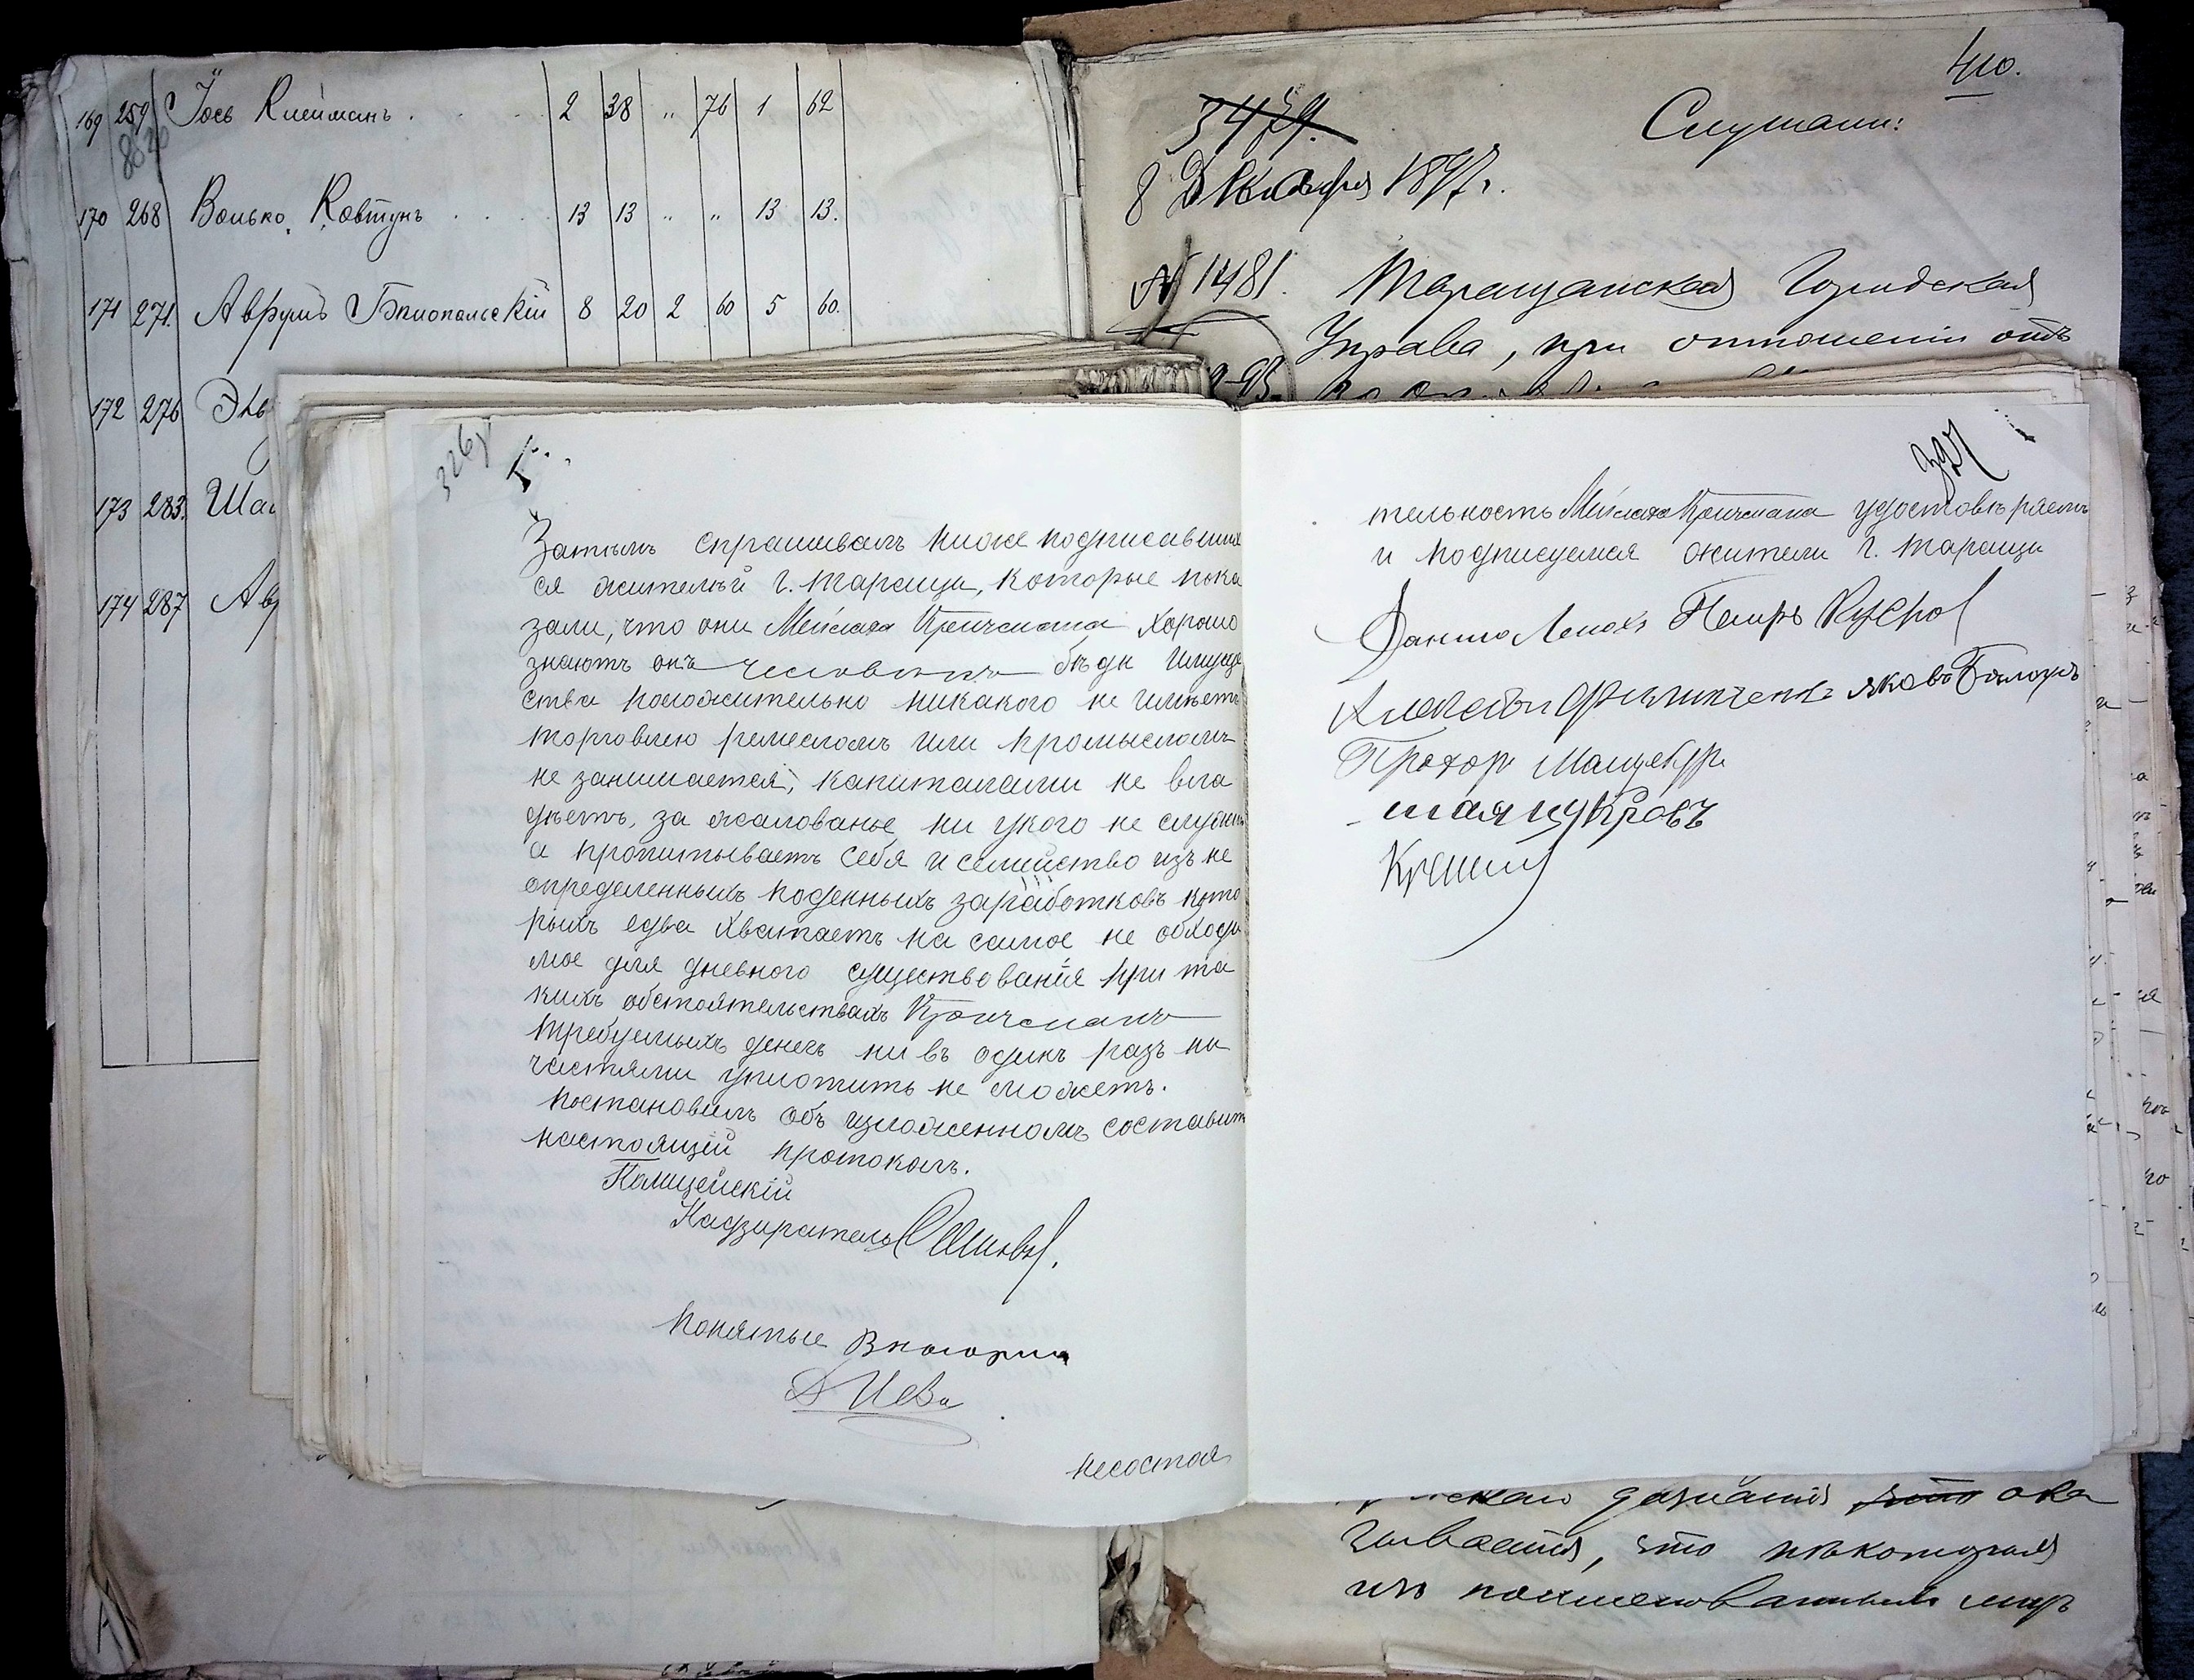 169 259 Іось Клейманъ . . . 2 38 „ 76 1 62
170 268 Волько Ковтунъ . . . 13 13 „ „ 13 13.
171 271. Аврумъ Бялопольскій 8 20 2 60 5 60.
172 276
173 283.
174 287
410.
3479.
Слушали:
8 Декабря 1897г.
N 1481. Таращанская Городская
Управа, при отношеніи отъ
326
Затѣмъ спрашивалъ ниже подписавших
ся жителей г. Таращи, которые пока
зали, что они Мейлаха Кричмана хорошо
знаютъ онъ человѣкъ бѣдн имуще
ства положительно никакого не имѣетъ
торговлею ремесломъ или промысломъ
не занимается, капиталами не вла
дѣетъ, за жалованье ни укого не служитъ
а пропитываетъ себя и семейство изъ не
определенныхъ поденныхъ заработковъ кото
рыхъ едва хватаетъ на самое не обходи
мое для дневного существованія при та
кихъ обстоятельствахъ Кричманъ
требуемыхъ денегъ ни въ одинъ разъ ни
частями уплотить не можетъ.
Постановилъ объ изложенномъ составить
настоящій протоколъ.
Полицейскій
Надзиратель
Понятые
несостоя
327
тельность Мейлаха Кричмана удостовѣряемъ
и подписуемся жители г. Таращи
Данило Петръ Кучеро
Яковъ
Прохор Мацебур
дазнанія что ока
зывается, что некоторыя
изъ поименованныхъ лицъ